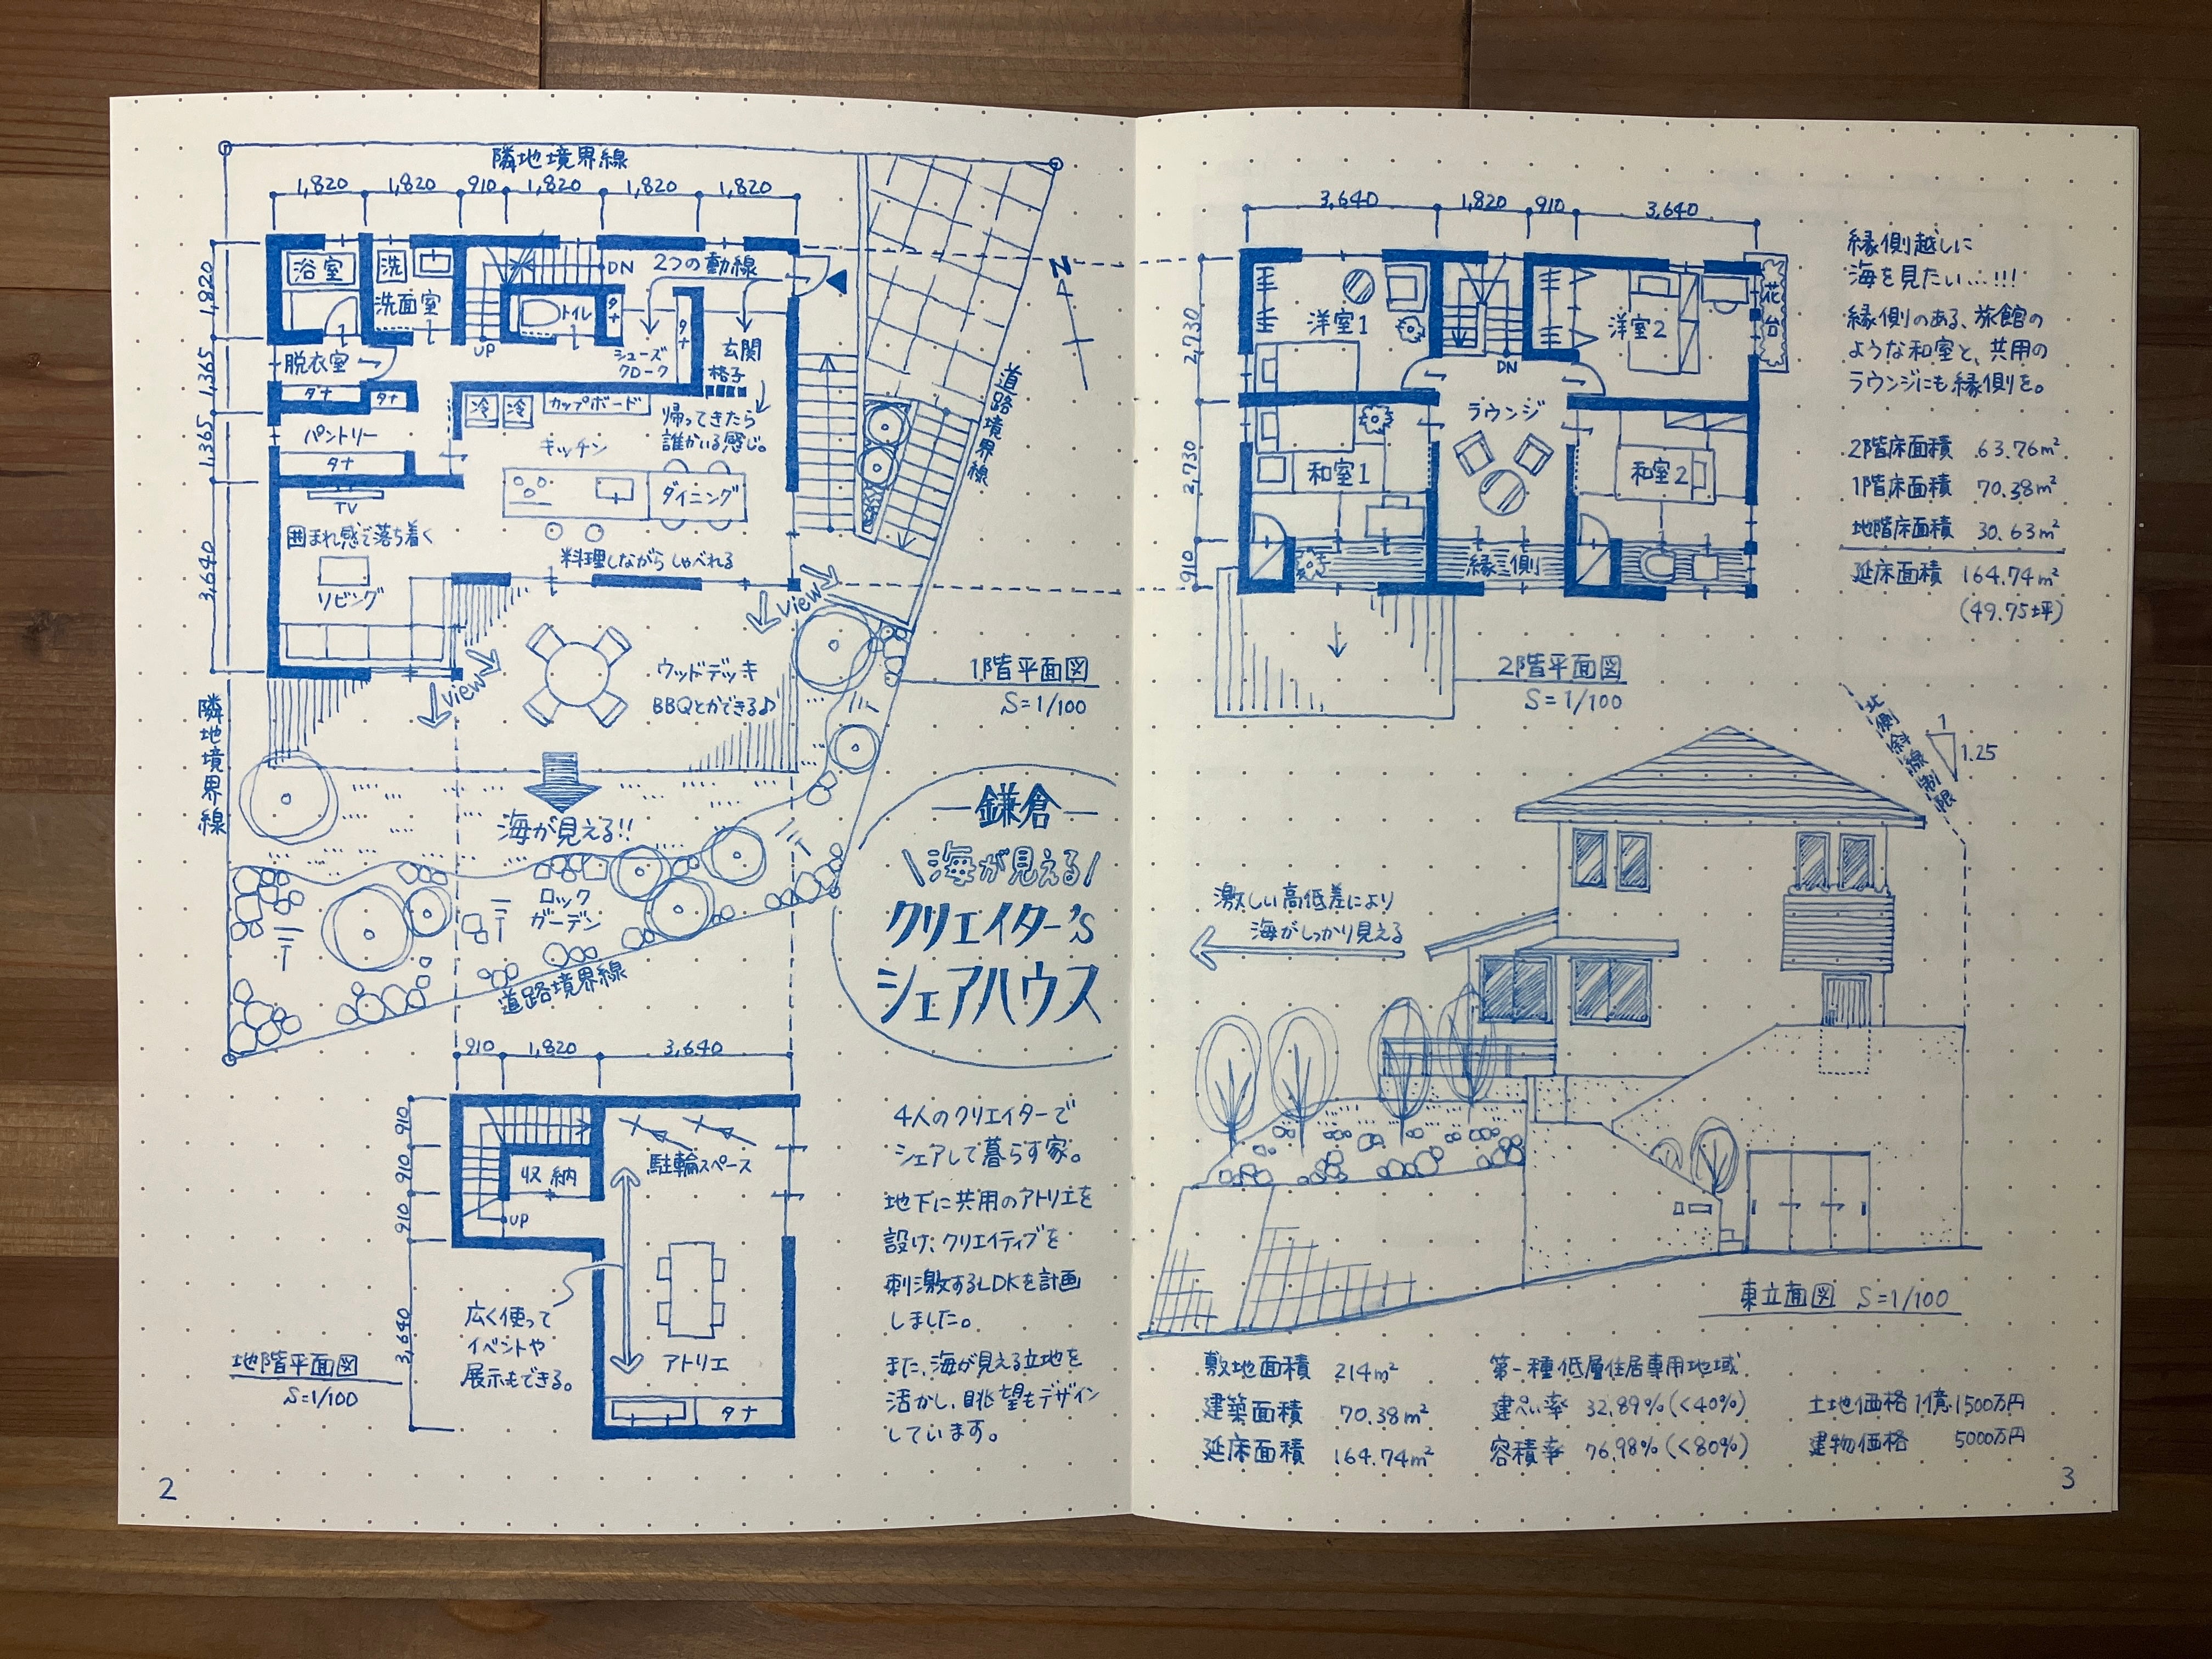 隣地境界線
1,820 1,820 910 1,820 1,820 1,820
1,820
1,365
1,365
3,640
浴室
洗
洗面室
DN
2つの動線
トイレ
タナ
タナ
シューズ
クローク
玄関
格子
UP
脱衣室
タナ
タナ
冷 冷
カップボード
帰ってきたら
誰かいる感じ。
パントリー
タナ
キッチン
ダイニング
TV
囲まれ感で落ち着く
料理しながらしゃべれる
リビング
view
view
ウッドデッキ
BBQとかできる♪
N
道路境界線
1階平面図
S=1/100
隣地境界線
海が見える!!
ロック
ガーデン
道路境界線
―鎌倉―
\海が見える/
クリエイター's
シェアハウス
910 1,820 3,640
910
910
910
3,640
収納
UP
駐輪スペース
広く使って
イベントや
展示もできる。
アトリエ
タナ
地階平面図
S=1/100
4人のクリエイターで
シェアして暮らす家。
地下に共用のアトリエを
設け、クリエイティブを
刺激するLDKを計画
しました。
また、海が見える立地を
活かし、眺望もデザイン
しています。
2
3,640 1,820 910 3,640
2,730
2,730
910
洋室1
洋室2
花台
DN
ラウンジ
和室1
和室2
縁側
2階平面図
S=1/100
縁側越しに
海を見たい…!!!
縁側のある、旅館の
ような和室と、共用の
ラウンジにも縁側を。
2階床面積 63.76m²
1階床面積 70.38m²
地階床面積 30.63m²
延床面積 164.74m²
(49.75坪)
北側斜線制限
1
1.25
激しい高低差により
海がしっかり見える
東立面図 S=1/100
敷地面積 214m²
建築面積 70.38m²
延床面積 164.74m²
第一種低層住居専用地域
建ぺい率 32.89%(<40%)
容積率 76.98%(<80%)
土地価格 1億1500万円
建物価格 5000万円
3